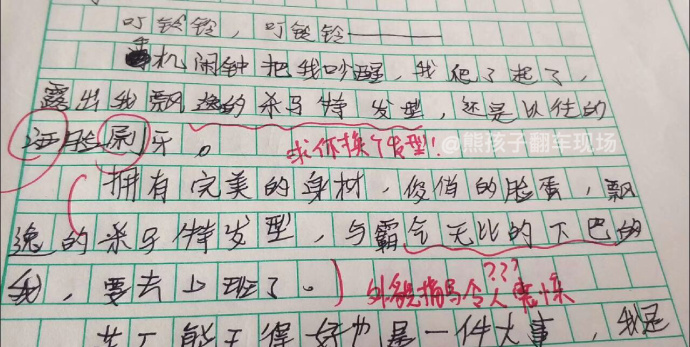 叮铃铃，叮铃铃———
手机闹钟把我吵醒，我爬了起了，
露出我飘逸的杀马特发型，还是以往的
洗脸刷牙。
求你换个发型！
@熊孩子翻车现场
拥有完美的身材，俊俏的脸蛋，飘
逸的杀马特发型，与霸气无比的下巴的
我，要去上班了。
外貌描写令人
???
能干得好也是一件大事，我是